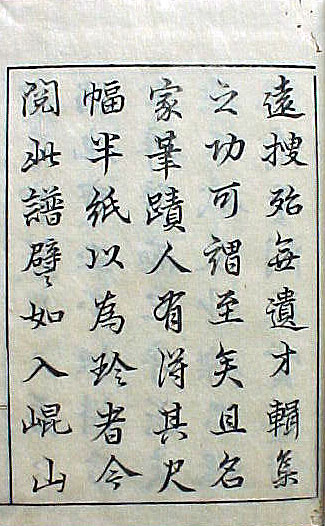 遠搜殆毎遺才輯集
之功可謂至矣且名
家筆蹟人有得其尺
幅半紙以為珍者今
閲此譜譬如入崐山